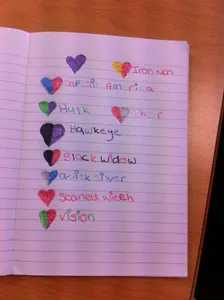 Iron Man
Captain America
Hulk Thor
Hawkeye
Black widow
Quick Silver
Scarlett witch
Vision